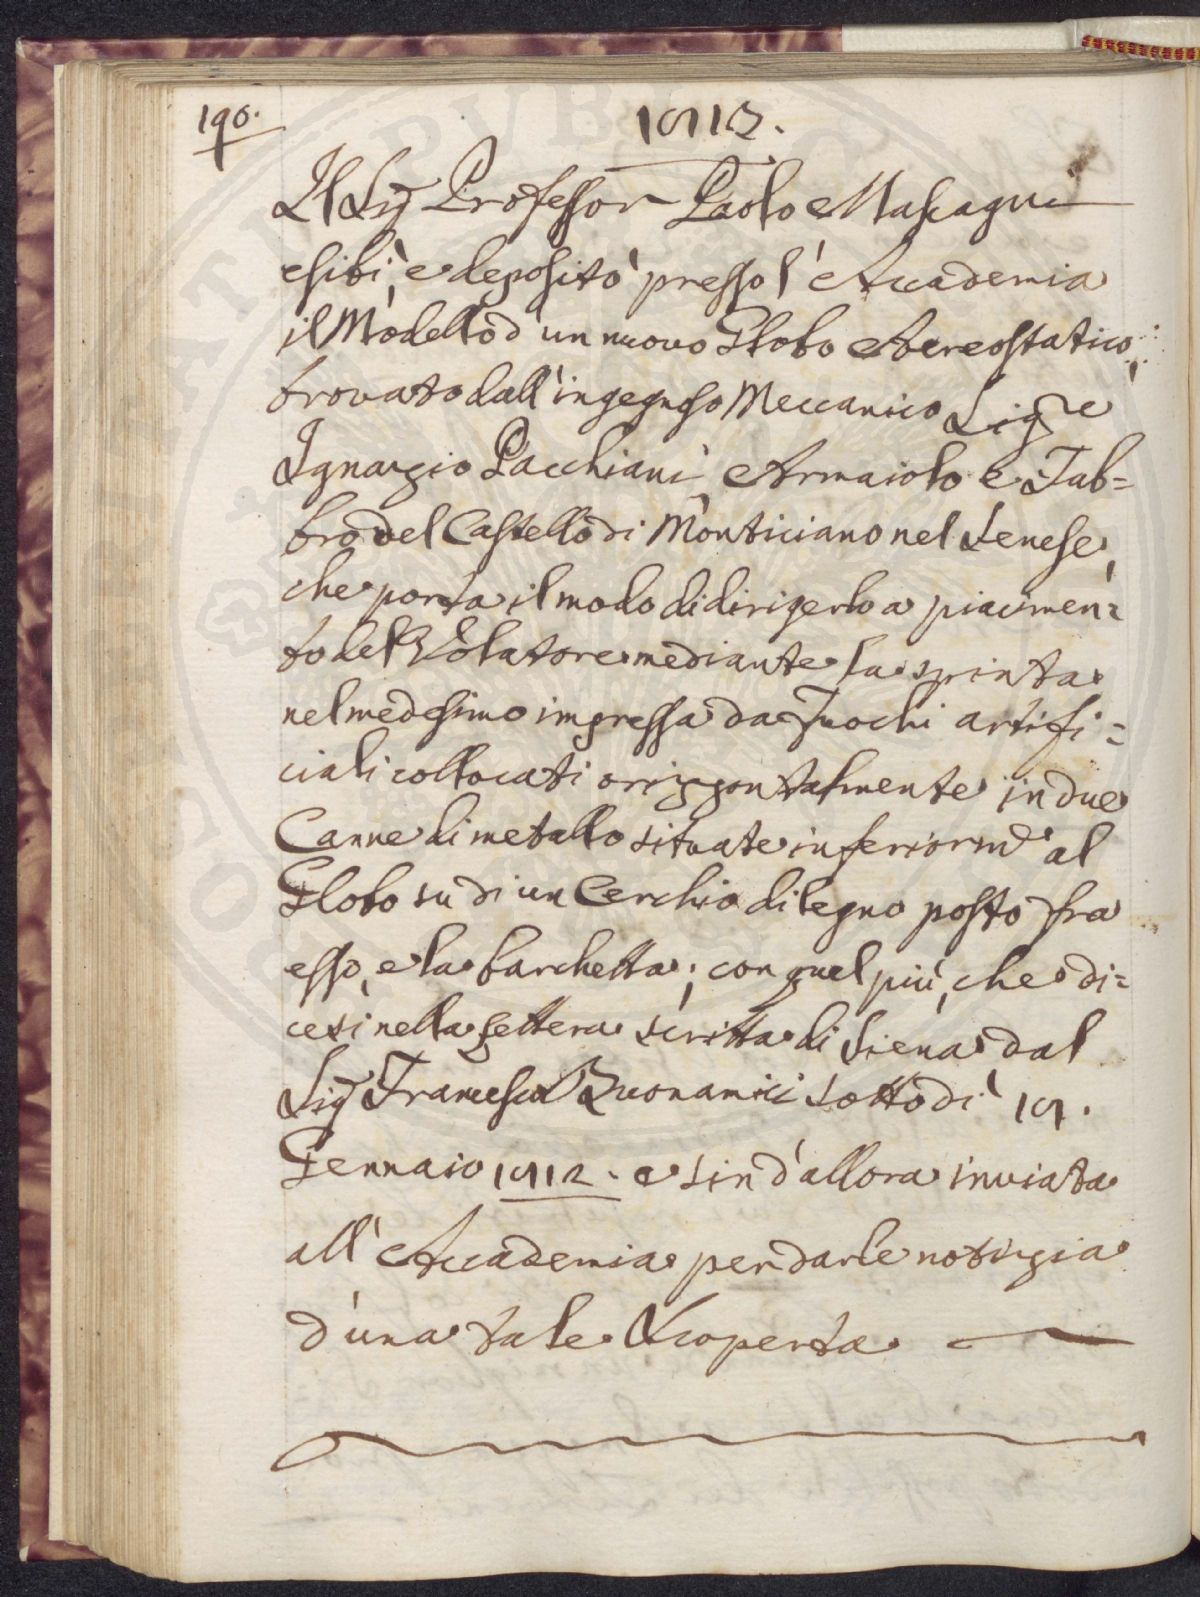 196.
1812.
Il Sig.r Professor Paolo Mascagni
esibì, e depositò presso l'Accademia
il Modello d'un nuovo Globo Aereostatico,
trovato dall'ingegnoso Meccanico Sig.re
Ignazio Pacchiani, Armaiolo e Fab=
bro del Castello di Monticiano nel Senese,
che porta il modo di dirigerlo a piacimen=
to del Volatore mediante la spinta
nel medesimo impressa da Fuochi artifi=
ciali collocati orizzontalmente in due
Canne di metallo situate inferiorm.e al
Globo su di un Cerchio di legno posto fra
esso, e la barchetta; con quel più, che di=
cesi nella Lettera scritta di Siena dal
Sig.r Francesco Buonamici sotto dì 18.
Gennaio 1812. e sin d'allora inviata
all'Accademia per darle notizia
d'una tale Scoperta.